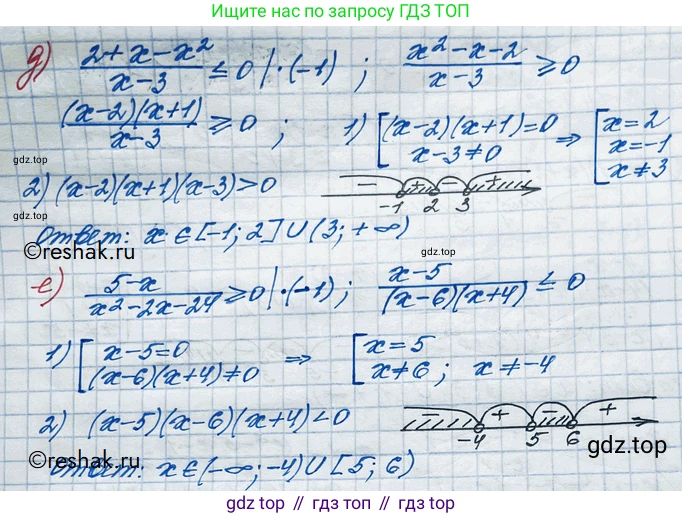 Ищите нас по запросу ГДЗ ТОП
д) (2+x-x²)/(x-3) ≤ 0 | ·(-1) ; (x²-x-2)/(x-3) ≥ 0
((x-2)(x+1))/(x-3) ≥ 0 ; 1) [(x-2)(x+1)=0 x-3≠0 ⇒ [x=2 x=-1 x≠3
gdz.top
gdz.top
2) (x-2)(x+1)(x-3)>0 - + - + -1 2 3
ответ: x ∈ [-1; 2] ∪ (3; +∞)
gdz.top
©reshak.ru
е) (5-x)/(x²-2x-24) ≥ 0 | ·(-1) ; (x-5)/((x-6)(x+4)) ≤ 0
1) [x-5=0 (x-6)(x+4)≠0 ⇒ [x=5 x≠6 ; x≠-4
2) (x-5)(x-6)(x+4)<0 - + - + -4 5 6
gdz.top
©reshak.ru
ответ: x∈(-∞;-4)∪[5; 6)
gdz.top // gdz.top // gdz.top